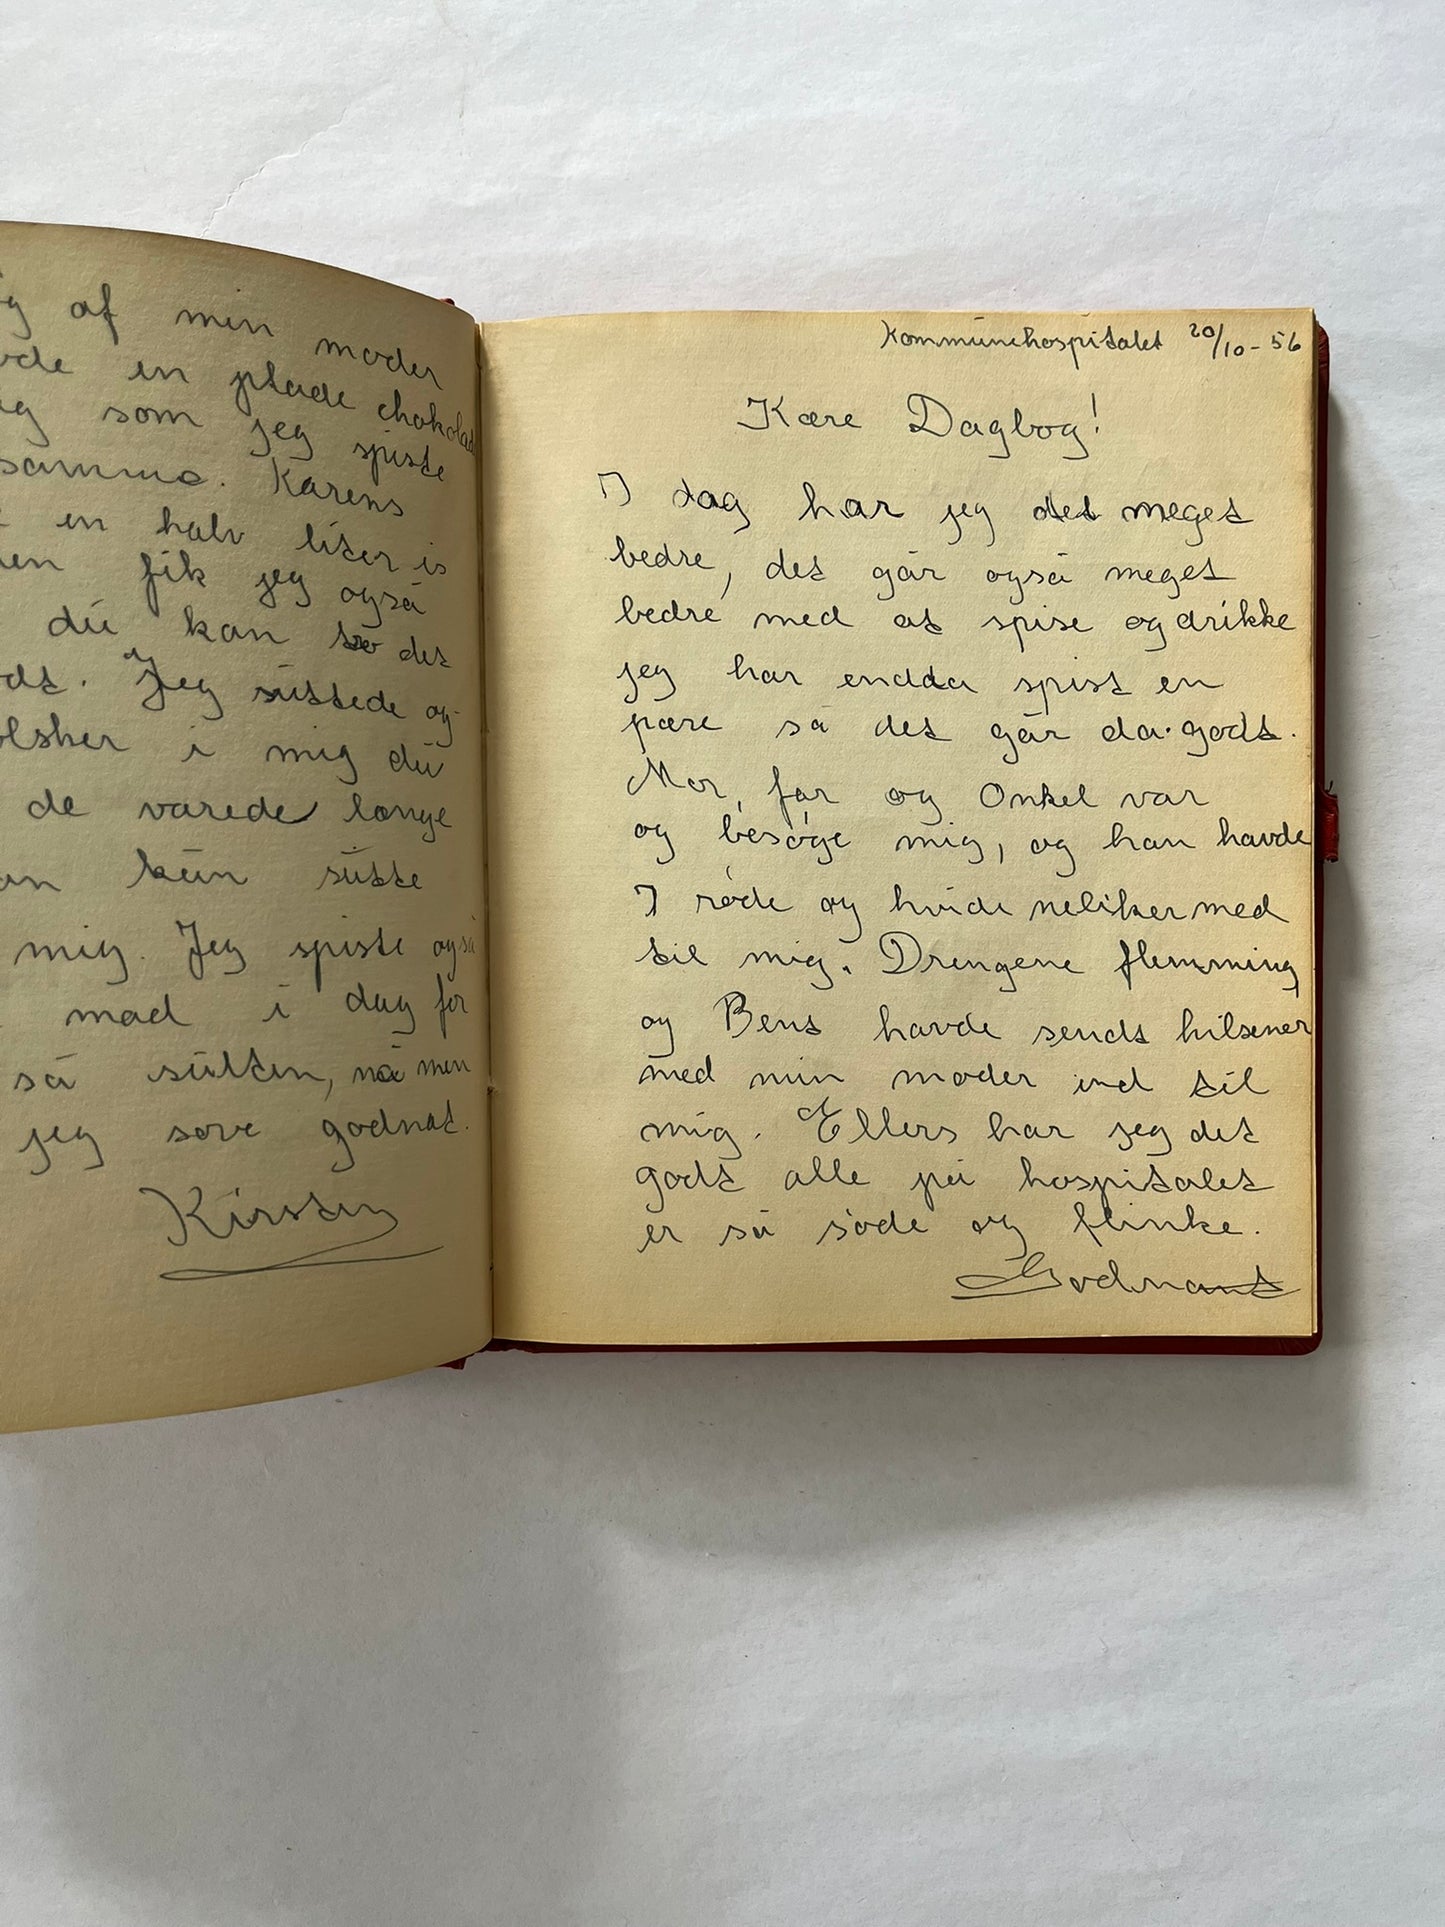 af min moder
en plade chokolad
som jeg spiste
samme. Karens
en halv liter is
fik jeg også
du kan tro det
Jeg suttede og
elsker i mig du
de varede længe
kun sutte
mig. Jeg spiste også
mad i dag for
så sulten, nå men
jeg sove godnat.
Kirsten
Kommunehospitalet 20/10-56
Kære Dagbog!
I dag har jeg det meget
bedre, det går også meget
bedre med at spise og drikke
jeg har endda spist en
pære så det går da godt.
Mor, far og Onkel var
og besøge mig, og han havde
7 røde og hvide neliker med
til mig. Drengene flemming
og Bent havde sendt hilsener
med min moder ind til
mig. Ellers har jeg det
godt alle på hospitalet
er så søde og flinke.
Godnat